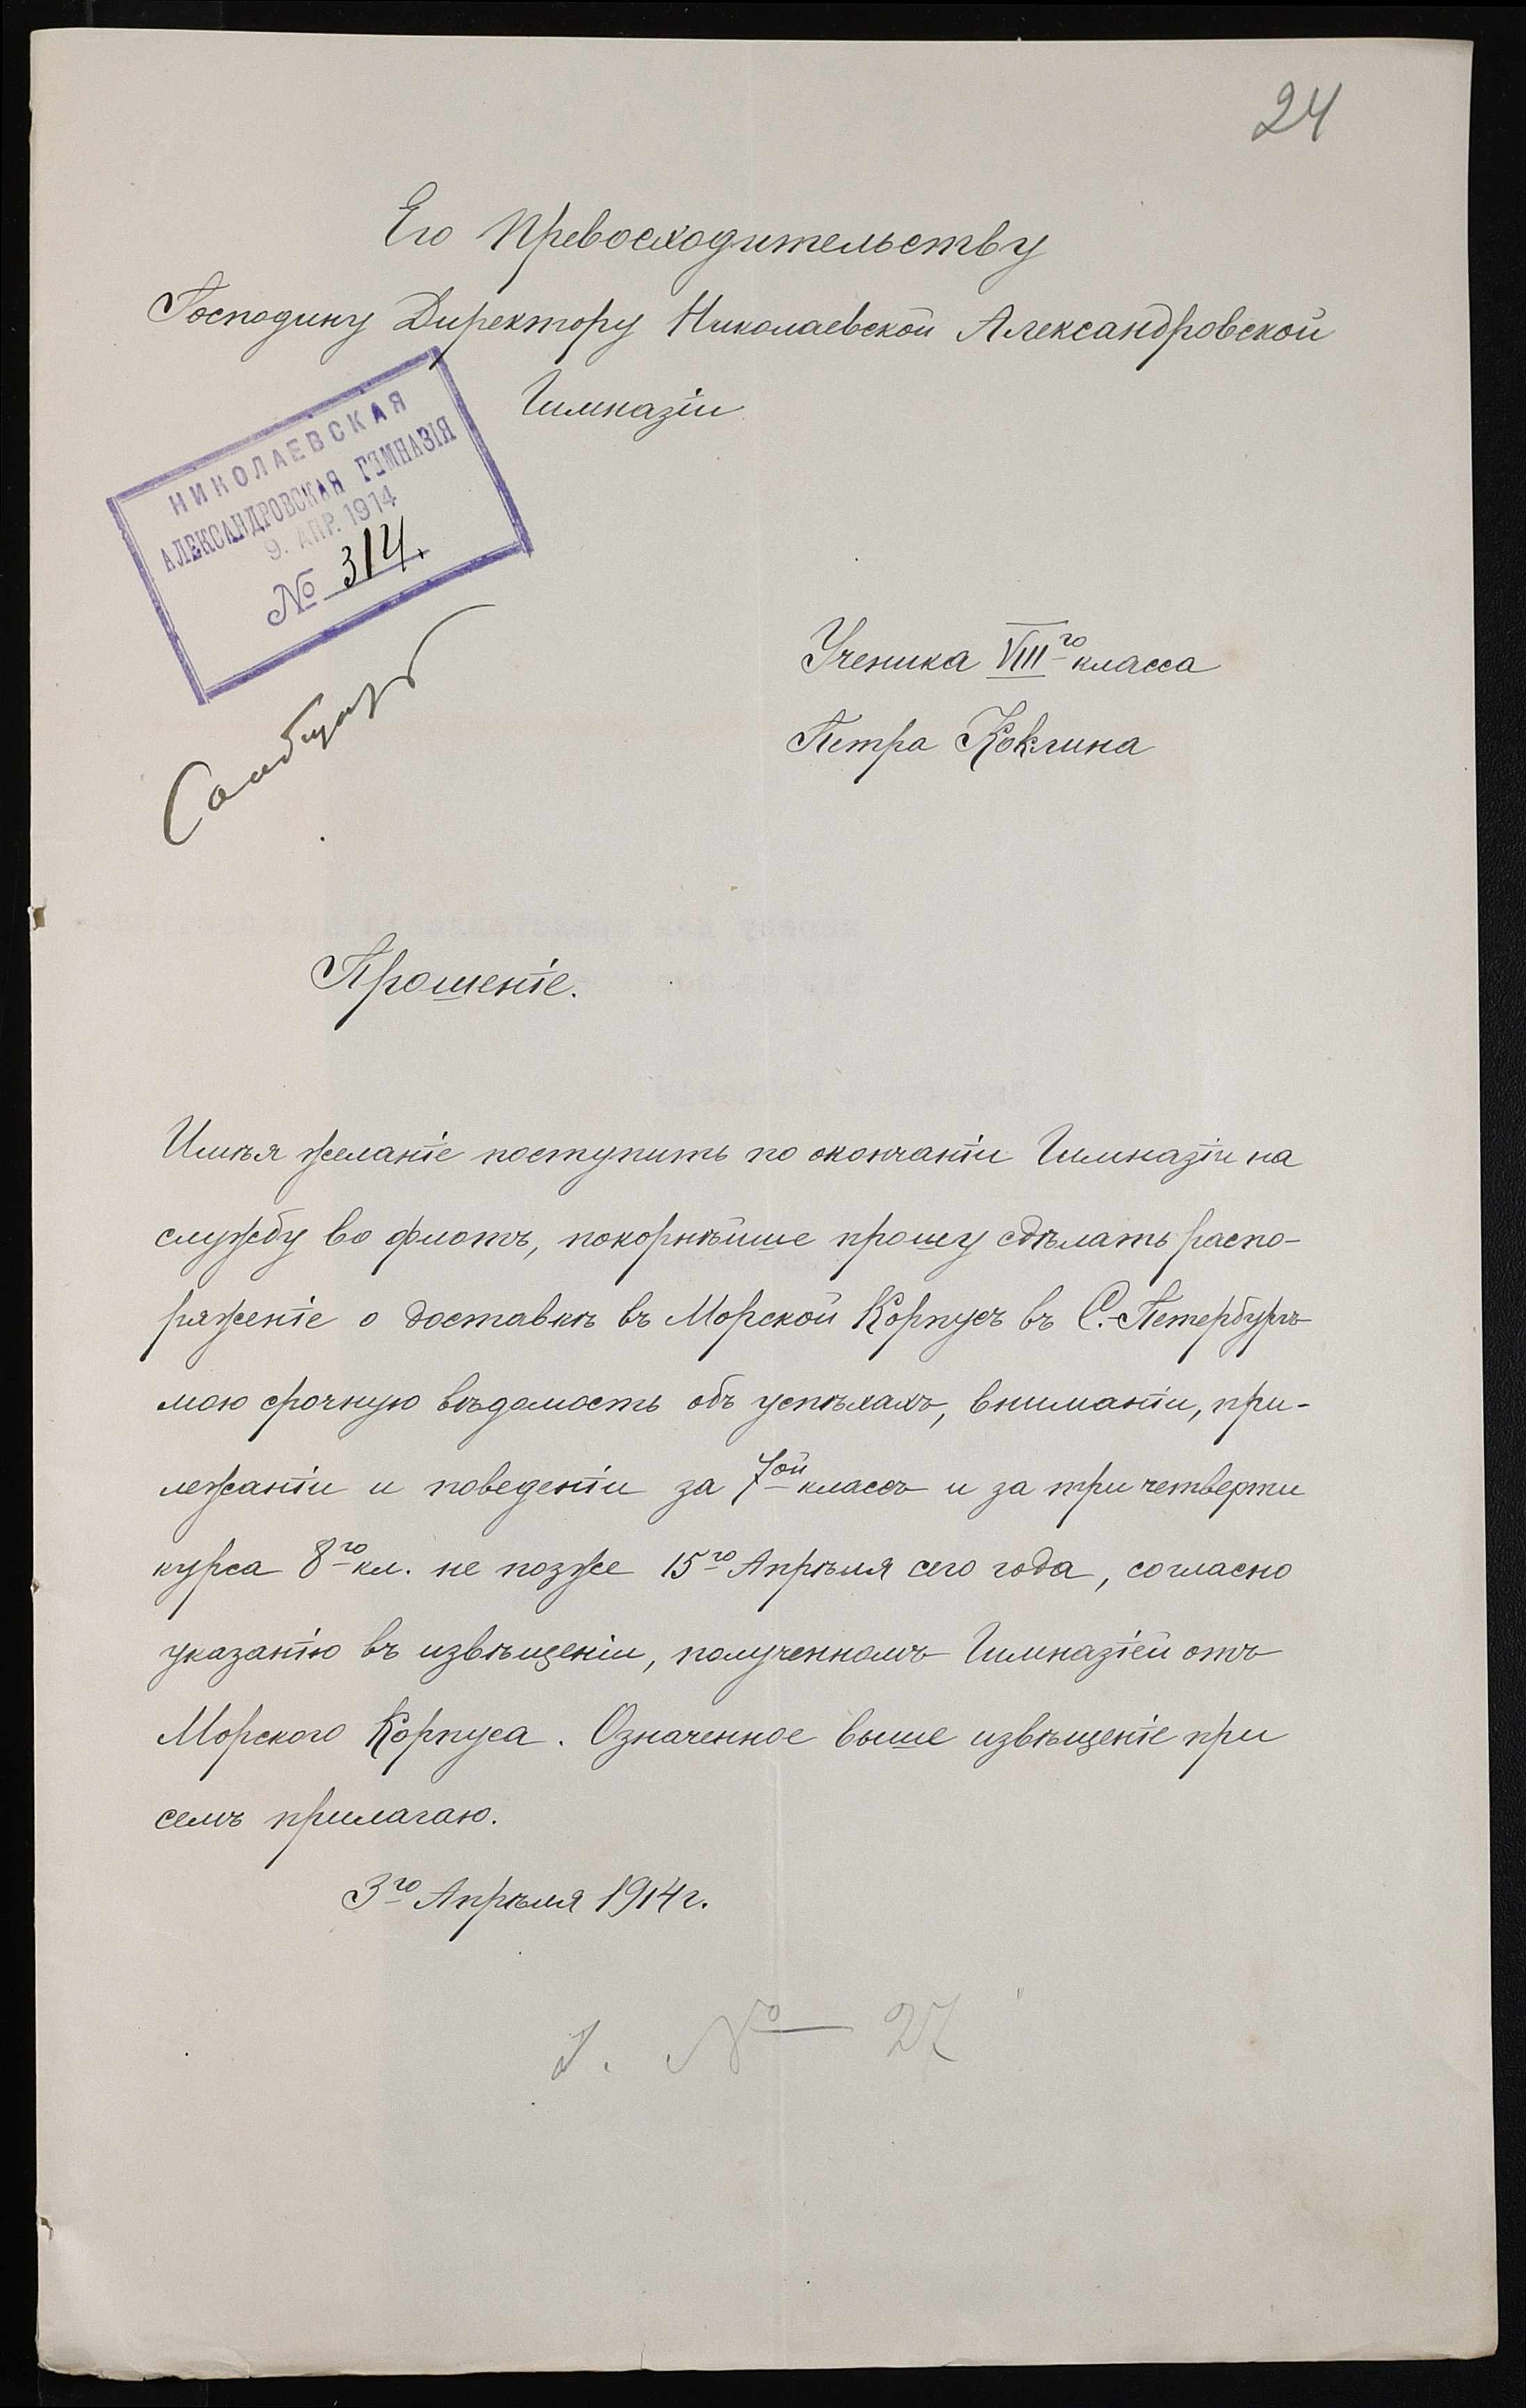 24
Его Превосходительству
Господину Директору Николаевской Александровской
Гимназіи
НИКОЛАЕВСКАЯ
АЛЕКСАНДРОВСКАЯ ГИМНАЗІЯ
9. АПР. 1914
№ 314.
Ученика VIII го класса
Петра Коклина
Прошеніе.
Имѣя желаніе поступить по окончаніи Гимназіи на
службу во флотъ, покорнѣйше прошу сдѣлать распо-
ряженіе о доставкѣ въ Морской Корпусъ въ С.-Петербургъ
мою срочную вѣдомость объ успѣхахъ, вниманіи, при-
лежаніи и поведеніи за 7ой классъ и за три четверти
курса 8го кл. не позже 15го Апрѣля сего года, согласно
указанію въ извѣщеніи, полученномъ Гимназіей отъ
Морского Корпуса. Означенное выше извѣщеніе при
семъ прилагаю.
3го Апрѣля 1914 г.
№ 27